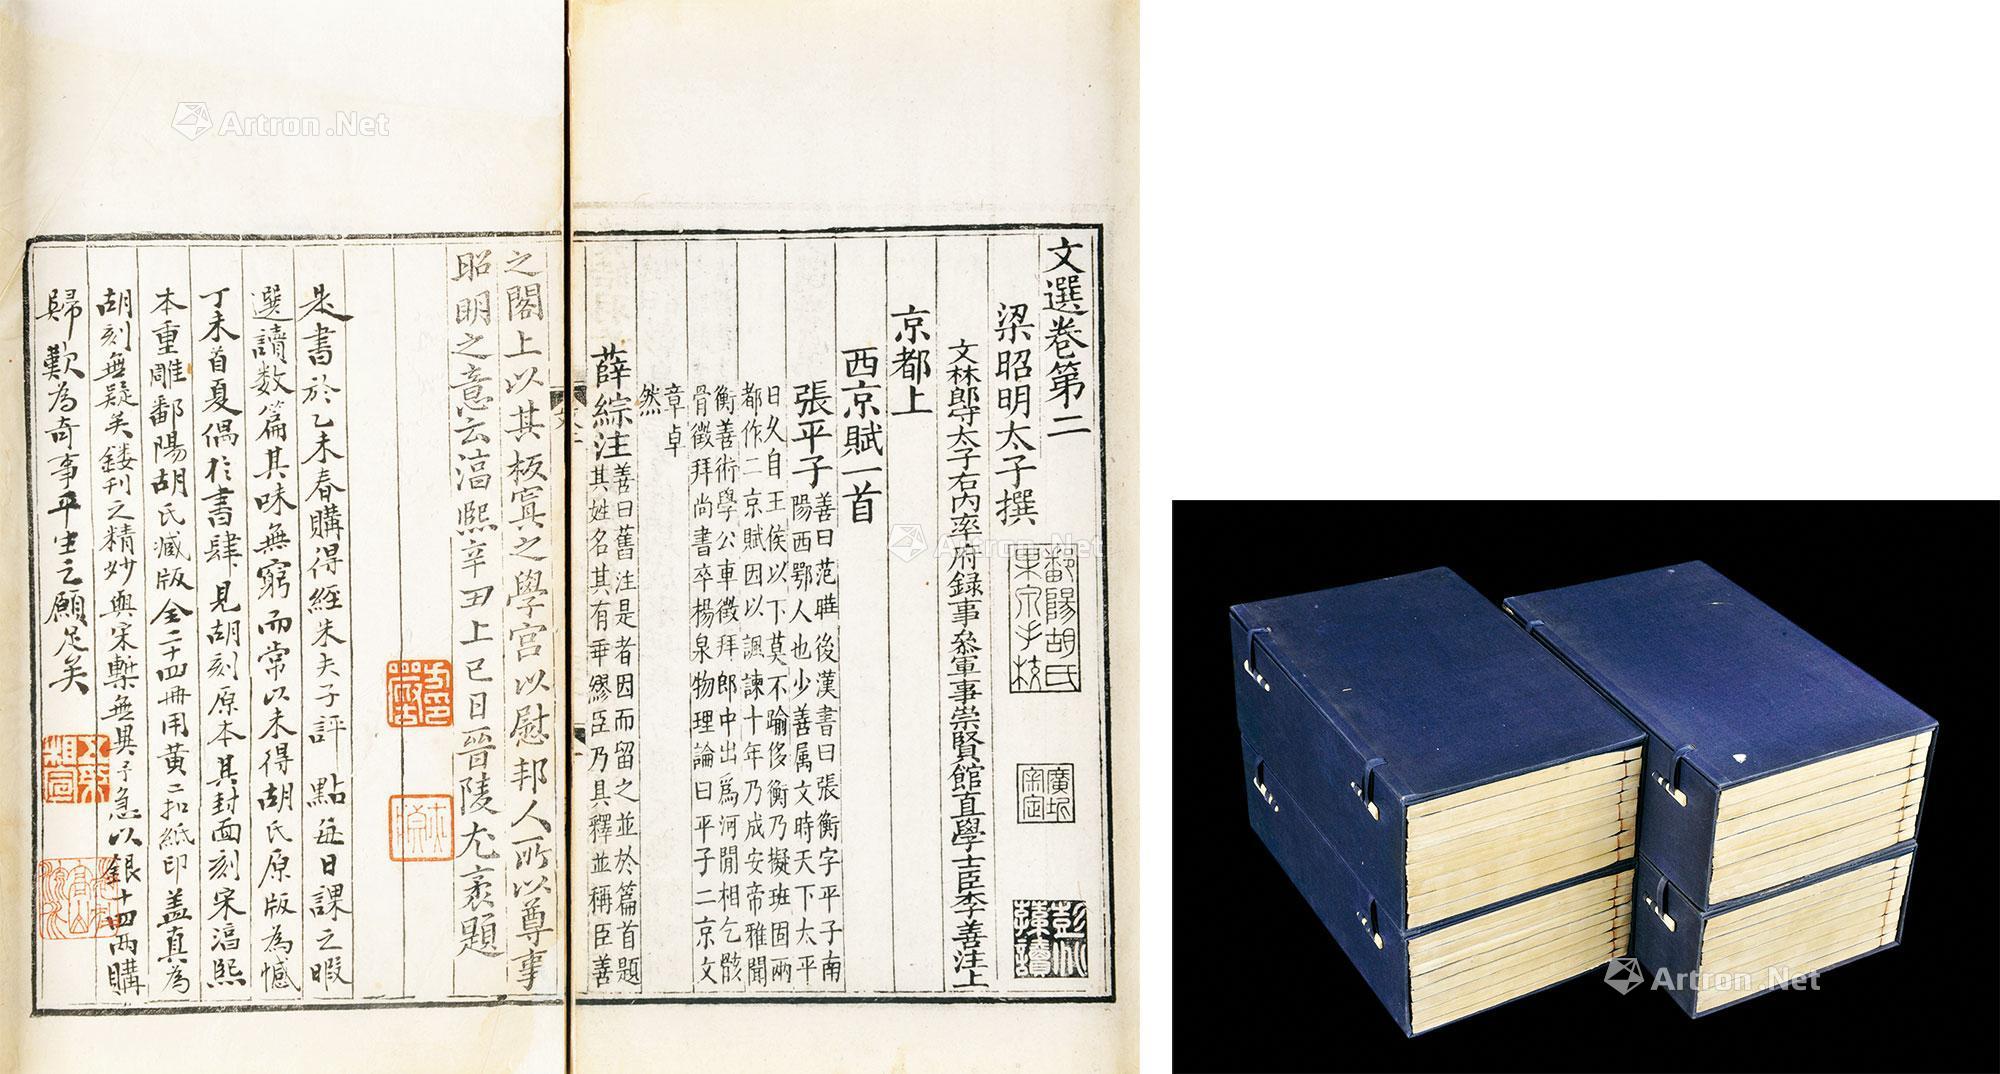 文選卷第二
梁昭明太子撰
文林郎守太子右内率府録事叅軍事崇賢館直學士臣李善注上
京都上
西京賦一首
張平子
善曰范曄後漢書曰張衡字平子南
陽西鄂人也少善属文時天下太平
日久自王侯以下莫不踰侈衡乃擬班固兩
都作二京賦因以諷諫十年乃成安帝雅聞
衡善術學公車徵拜郎中出爲河閒相乞骸
骨徵拜尚書卒楊泉物理論曰平子二京文
章卓
然
薛綜注
善曰舊注是者因而留之並於篇首題
其姓名其有乖繆臣乃具釋並稱臣善
鄱陽胡氏
果泉手校
彭州
孫讀
之閣上以其板寘之學宮以慰邦人所以尊事
昭明之意云淳熙辛丑上巳日晉陵尤袤題
是書於乙未春購得經朱夫子評點每日課之暇
選讀数篇其味無窮而常以未得胡氏原版為憾
丁未首夏偶於書肆見胡刻原本其封面刻宋淳熙
本重雕鄱陽胡氏減版全二十四冊用黄二扣紙印盖真為
胡刻無疑矣鏤刊之精妙與宋槧無異予急以銀十四兩購
歸歎為奇事平生之願足矣
Artron.Net
Artron.Net
Artron.Net